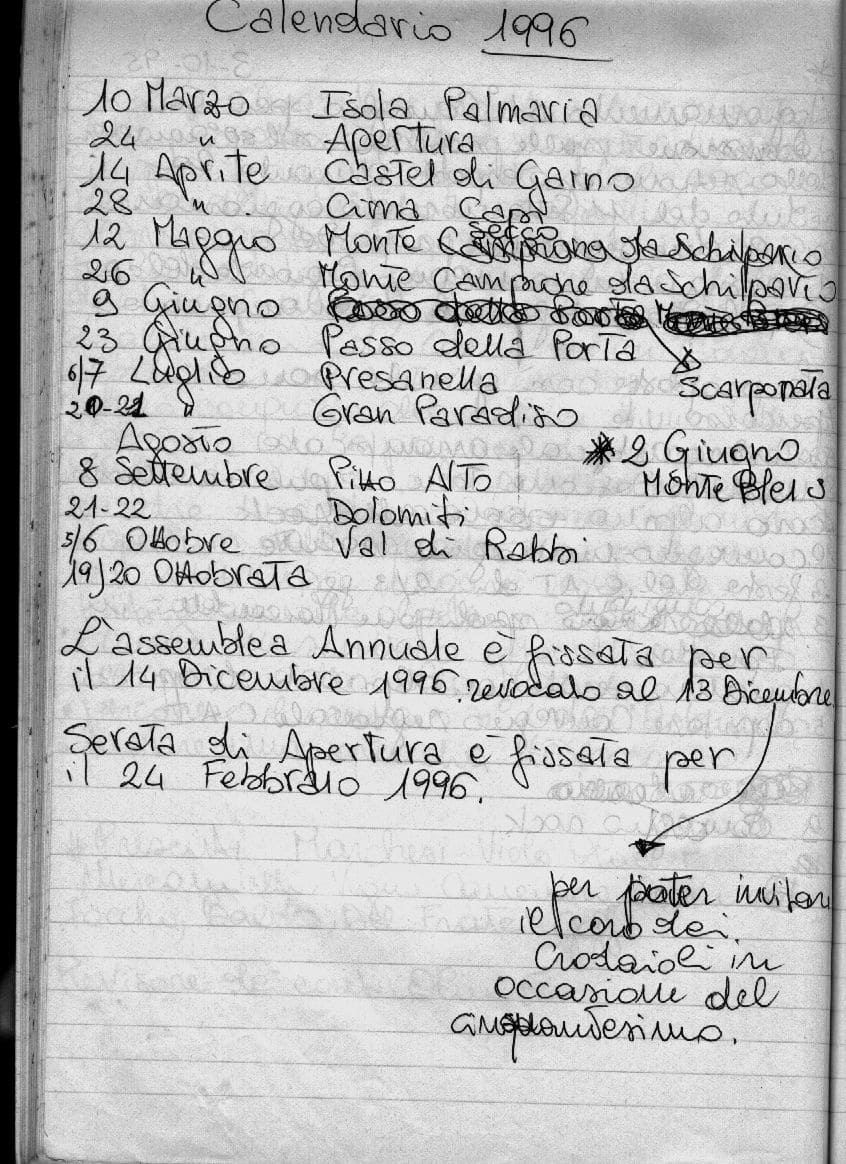 Calendario 1996
10 Marzo Isola Palmaria
24 " Apertura
14 Aprile Castel di Gaino
28 " Cima Capi
secco
12 Maggio Monte Campione da Schilpario
26 " Monte Campione da Schilpario
9 Giugno
23 Giugno Passo della Porta
Scarponata
6/7 Luglio Presanella
20-21 " Gran Paradiso
Agosto
* 2 Giugno
Monte Bleis
8 Settembre Pizzo Alto
21-22 Dolomiti
5/6 Ottobre Val di Rabbi
19/20 Ottobrata
L'assemblea Annuale è fissata per
il 14 Dicembre 1996. revocato al 13 Dicembre
Serata di Apertura è fissata per
il 24 Febbraio 1996.
per poter invitare
il coro dei
Crodaioli in
occasione del
cinquantesimo.